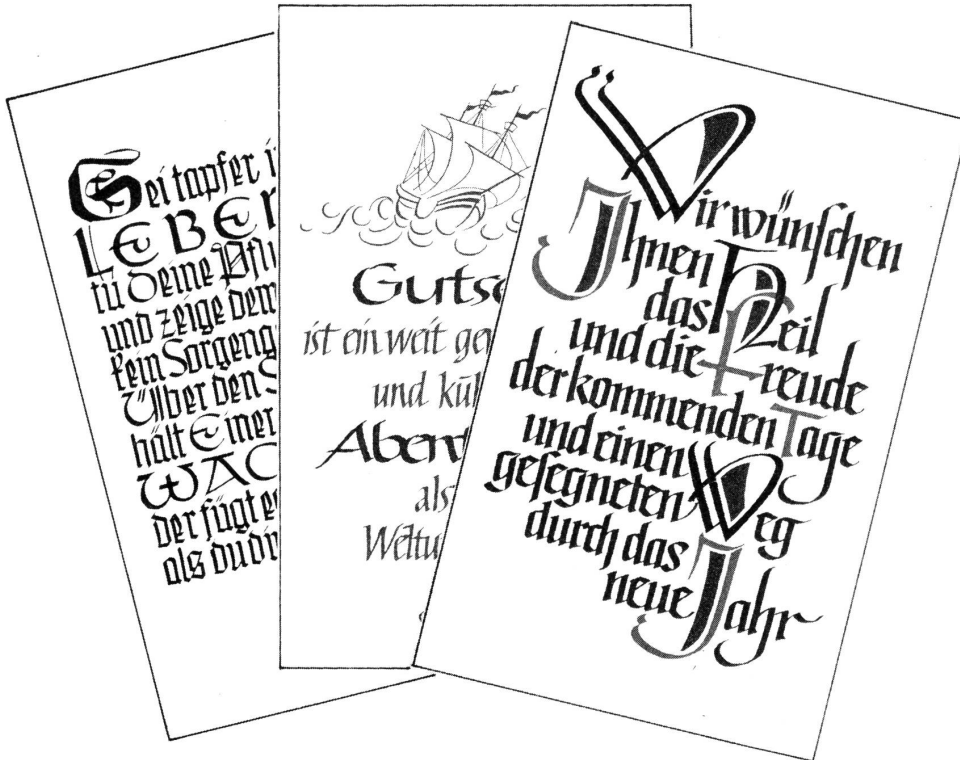 Sei tapfer i
LEBEN
tu deine Pfli
und zeige dem
kein Sorgeng
Über den S
hält Einer
WAC
der fügt es
als du dir
Gutse
ist ein weit ger
und küh
Abent
als
Weltu
Wir wünschen
Ihnen
das Heil
und die Freude
der kommenden Tage
und einen
gesegneten Weg
durch das
neue Jahr